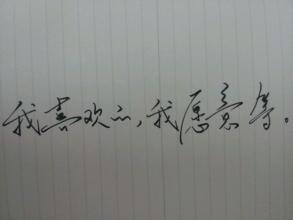 我喜欢你,我愿意等。